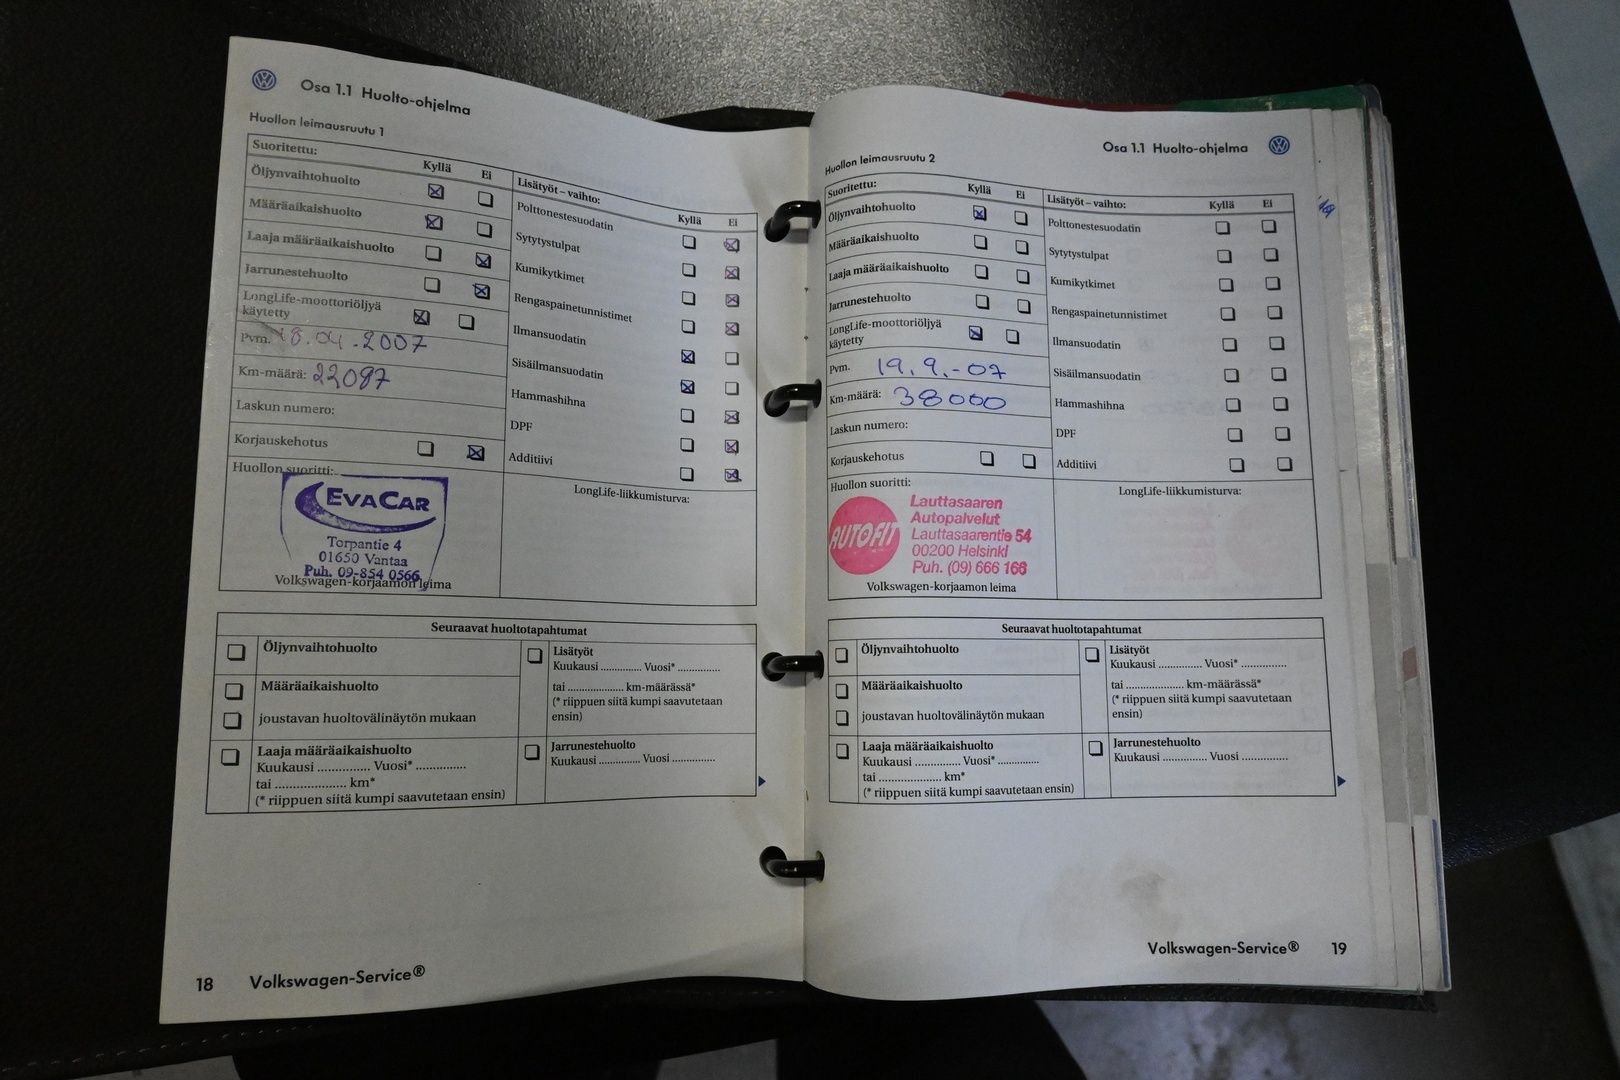 Osa 1.1 Huolto-ohjelma
Huollon leimausruutu 1
Suoritettu:
Kyllä Ei
Öljynvaihtohuolto
Määräaikaishuolto
Laaja määräaikaishuolto
Jarrunestehuolto
LongLife-moottoriöljyä
käytetty
Pvm. 18.04.2007
Km-määrä: 22087
Laskun numero:
Korjauskehotus
Huollon suoritti:
EVACAR
Torpantie 4
01650 Vantaa
Puh. 09-854 0566
Volkswagen-korjaamon leima
Lisätyöt – vaihto:
Kyllä Ei
Polttonestesuodatin
Sytytystulpat
Kumikytkimet
Rengaspainetunnistimet
Ilmansuodatin
Sisäilmansuodatin
Hammashihna
DPF
Additiivi
LongLife-liikkumisturva:
Seuraavat huoltotapahtumat
Öljynvaihtohuolto
Määräaikaishuolto
joustavan huoltovälinäytön mukaan
Laaja määräaikaishuolto
Kuukausi ............... Vuosi* ...............
tai ..................... km*
(* riippuen siitä kumpi saavutetaan ensin)
Lisätyöt
Kuukausi .............. Vuosi* ..............
tai .................... km-määrässä*
(* riippuen siitä kumpi saavutetaan
ensin)
Jarrunestehuolto
Kuukausi .............. Vuosi ..............
18 Volkswagen-Service®
Osa 1.1 Huolto-ohjelma
Huollon leimausruutu 2
Suoritettu:
Kyllä Ei
Öljynvaihtohuolto
Määräaikaishuolto
Laaja määräaikaishuolto
Jarrunestehuolto
LongLife-moottoriöljyä
käytetty
Pvm. 19.9.-07
Km-määrä: 38000
Laskun numero:
Korjauskehotus
Huollon suoritti:
AUTOFIT
Lauttasaaren
Autopalvelut
Lauttasaarentie 54
00200 Helsinki
Puh. (09) 666 166
Volkswagen-korjaamon leima
Lisätyöt – vaihto:
Kyllä Ei
Polttonestesuodatin
Sytytystulpat
Kumikytkimet
Rengaspainetunnistimet
Ilmansuodatin
Sisäilmansuodatin
Hammashihna
DPF
Additiivi
LongLife-liikkumisturva:
Seuraavat huoltotapahtumat
Öljynvaihtohuolto
Määräaikaishuolto
joustavan huoltovälinäytön mukaan
Laaja määräaikaishuolto
Kuukausi ............... Vuosi* ..............
tai ..................... km*
(* riippuen siitä kumpi saavutetaan ensin)
Lisätyöt
Kuukausi ............... Vuosi* ...............
tai .................... km-määrässä*
(* riippuen siitä kumpi saavutetaan
ensin)
Jarrunestehuolto
Kuukausi ............... Vuosi ...............
Volkswagen-Service® 19